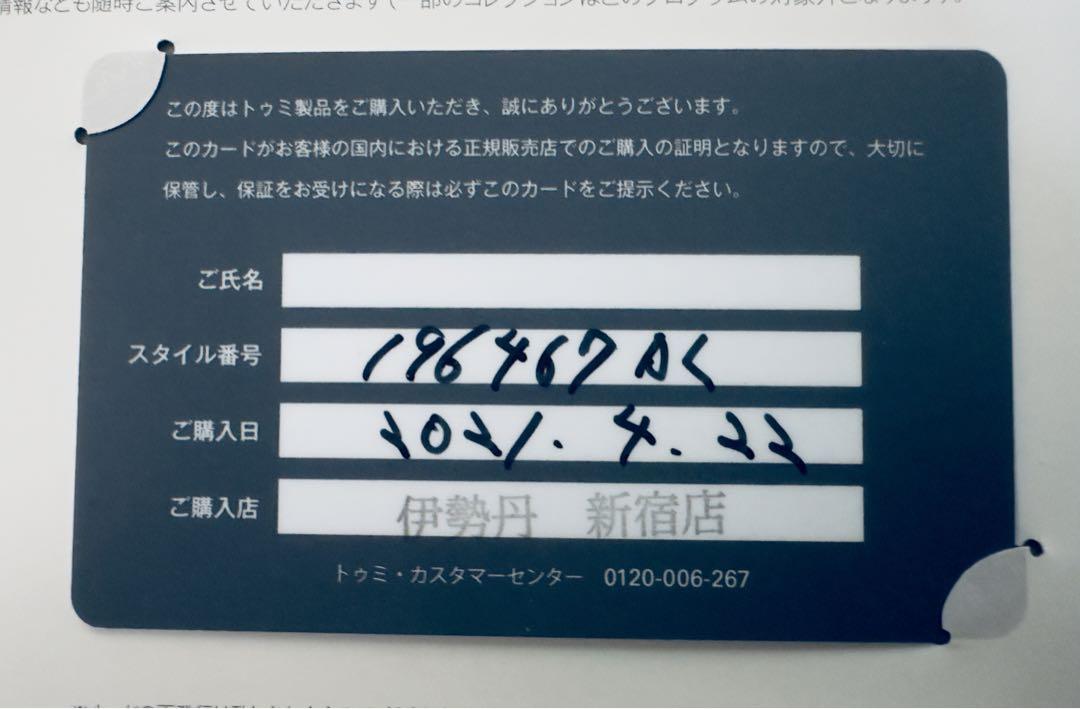 情報なども随時ご案内させていただきます(一部のコレクションはこのプログラムの対象外となります。
この度はトゥミ製品をご購入いただき、誠にありがとうございます。
このカードがお客様の国内における正規販売店でのご購入の証明となりますので、大切に
保管し、保証をお受けになる際は必ずこのカードをご提示ください。
ご氏名
スタイル番号 196467 AL
ご購入日 2021. 4. 22
ご購入店 伊勢丹 新宿店
トゥミ・カスタマーセンター 0120-006-267